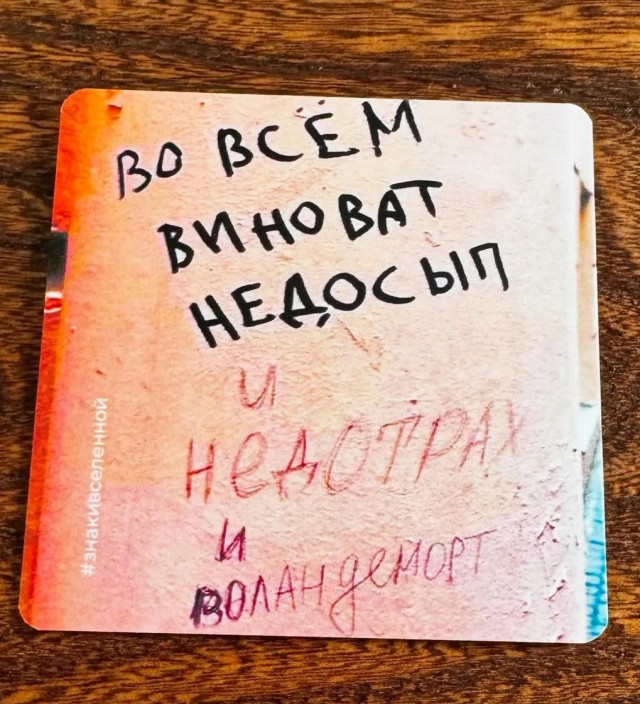 ВО ВСЁМ
ВИНОВАТ
НЕДОСЫП
И
НЕДОТРАХ
И
ВОЛАНДЕМОРТ
#знакивселенной